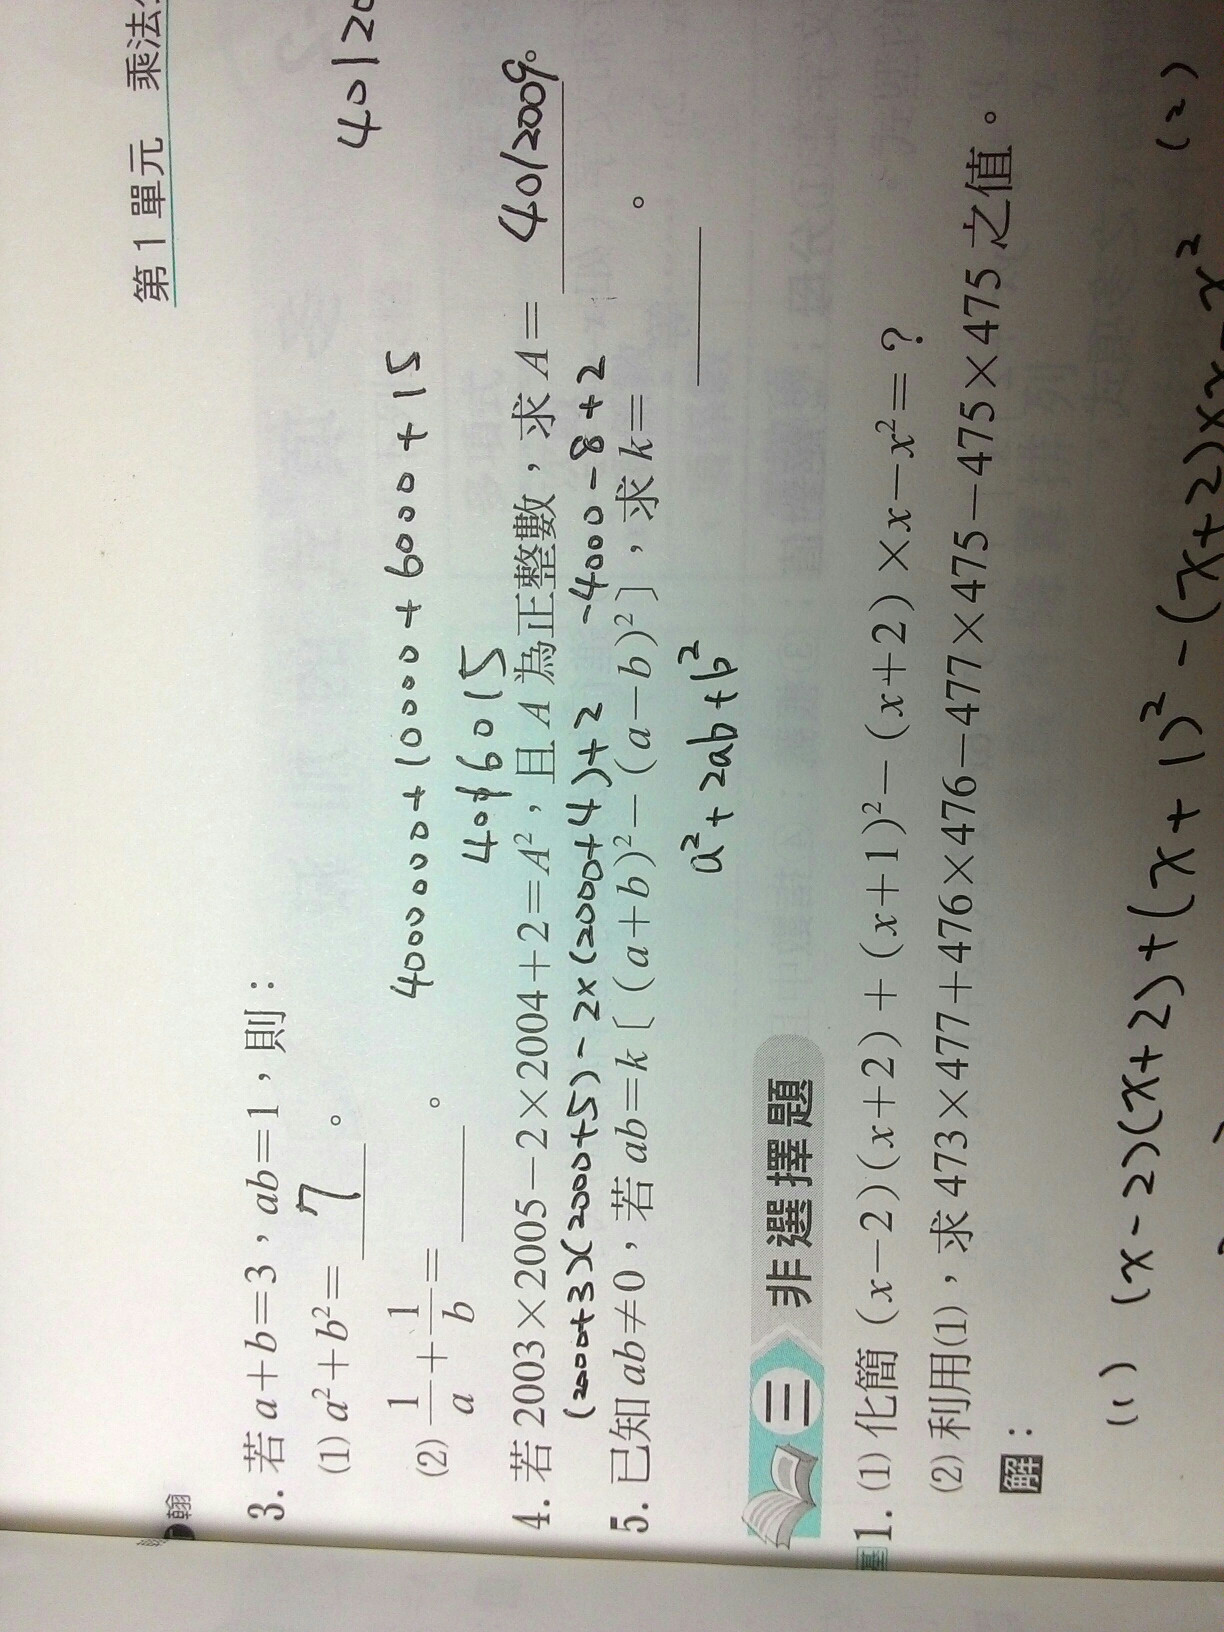 翰
第1單元 乘法
3. 若 a+b=3，ab=1，則：
(1) a²+b²= 7 。
(2) 1/a + 1/b = ＿＿＿。
4000000+10000+6000+15
4016015
40120
4. 若 2003×2005-2×2004+2=A²，且 A 為正整數，求 A= 4012009。
(2000+3)(2000+5)-2×(2000+4)+2 -4000-8+2
5. 已知 ab≠0，若 ab=k〔(a+b)²-(a-b)²〕，求 k= ＿＿＿。
a²+2ab+b²
三 非選擇題
基 1. (1) 化簡 (x-2)(x+2)+(x+1)²-(x+2)×x-x²=？
(2) 利用(1)，求 473×477+476×476-477×475-475×475 之值。
解：
(1) (x-2)(x+2)+(x+1)²-(x+2)×x-x² (2)